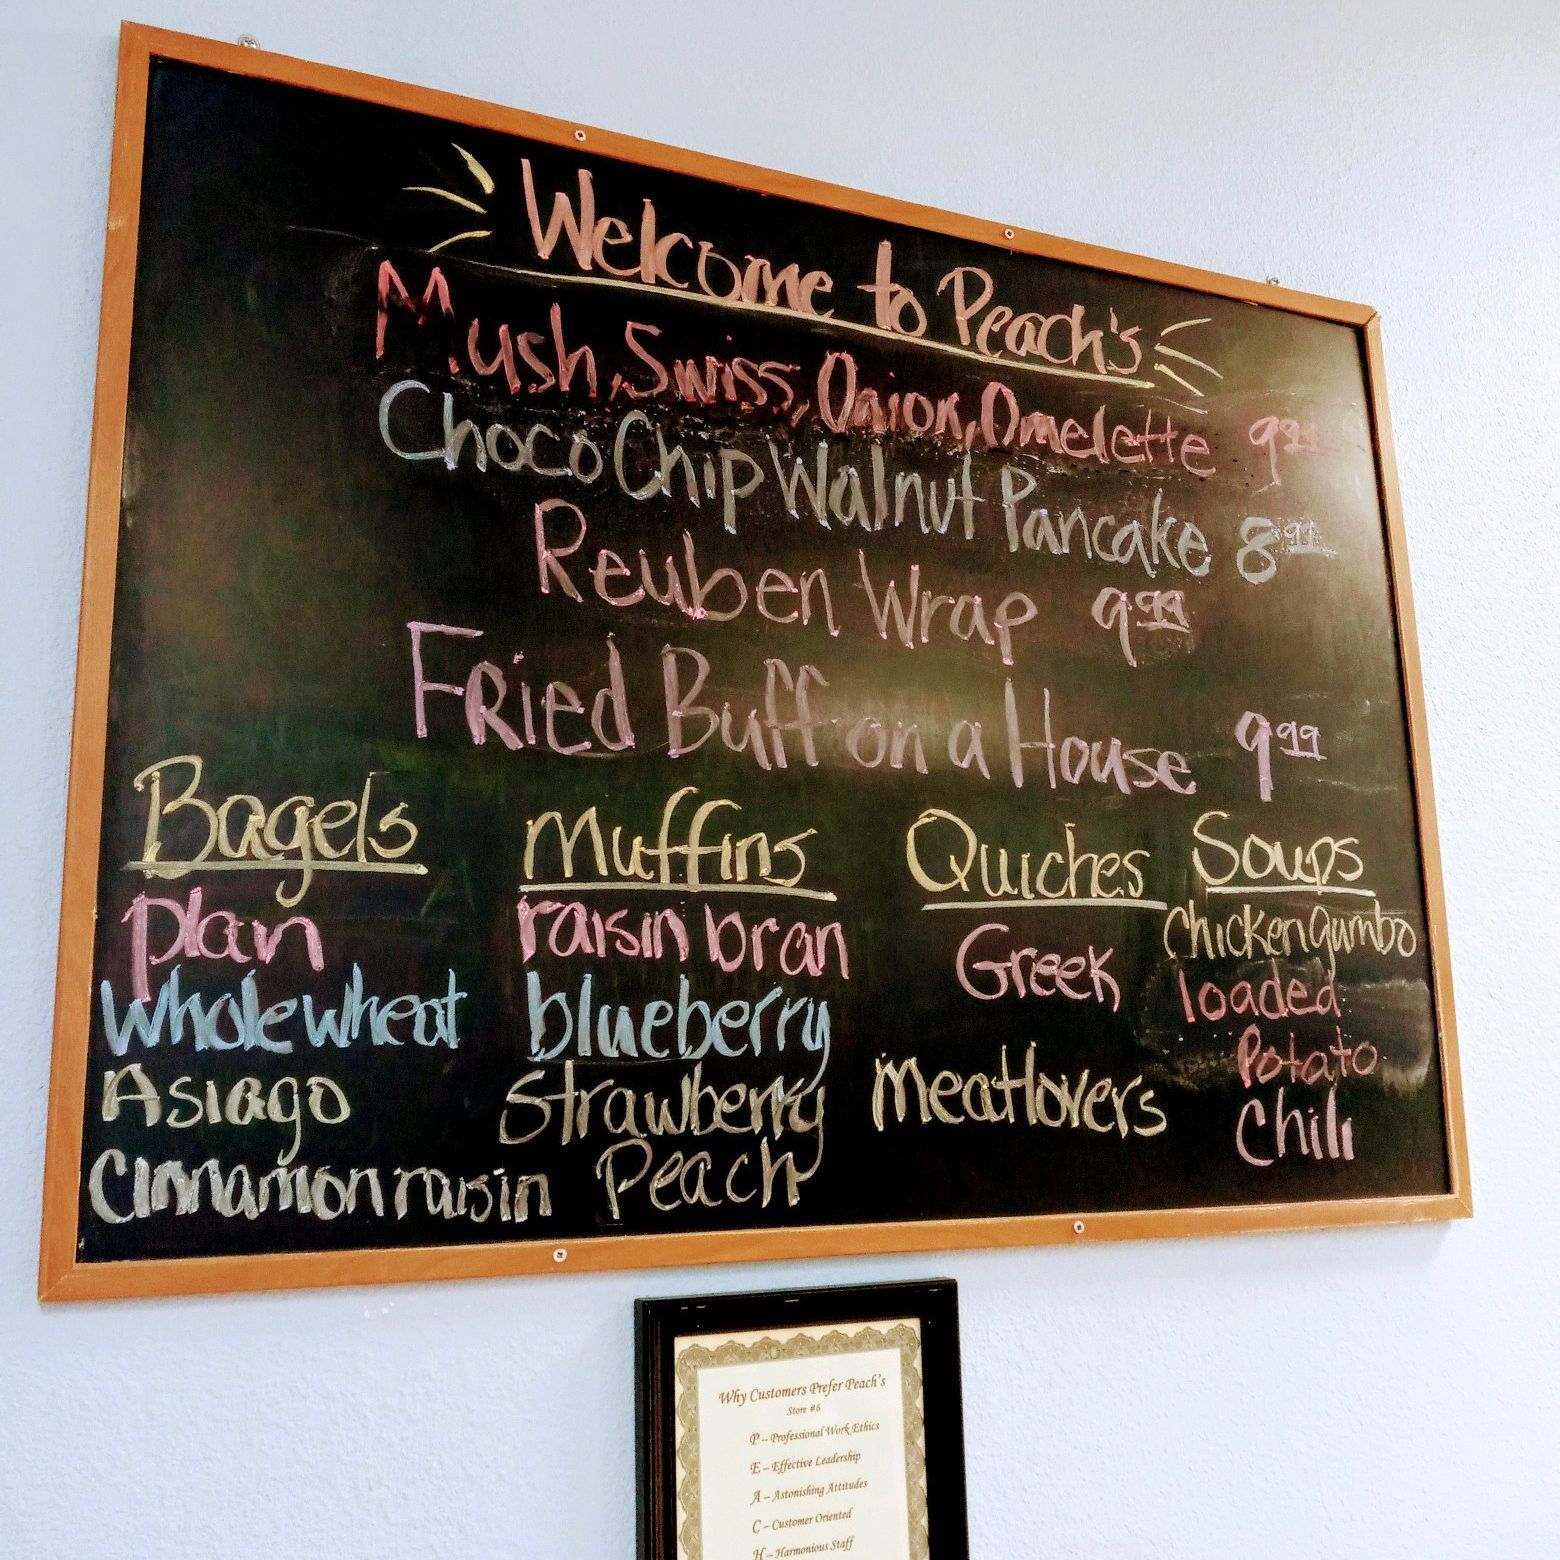 Welcome to Peach's
Mush, Swiss, Onion, Omelette 9.99
Choco Chip Walnut Pancake 8.99
Reuben Wrap 9.99
Fried Buff on a House 9.99
Bagels
plan
whole wheat
Asiago
Cinnamon raisin
Muffins
raisin bran
blueberry
Strawberry
Peach
Quiches
Greek
meatlovers
Soups
Chicken Gumbo
loaded
Potato
Chili
Why Customers Prefer Peach's
Store #6
P – Professional Work Ethics
E – Effective Leadership
A – Astonishing Attitudes
C – Customer Oriented
H – Harmonious Staff